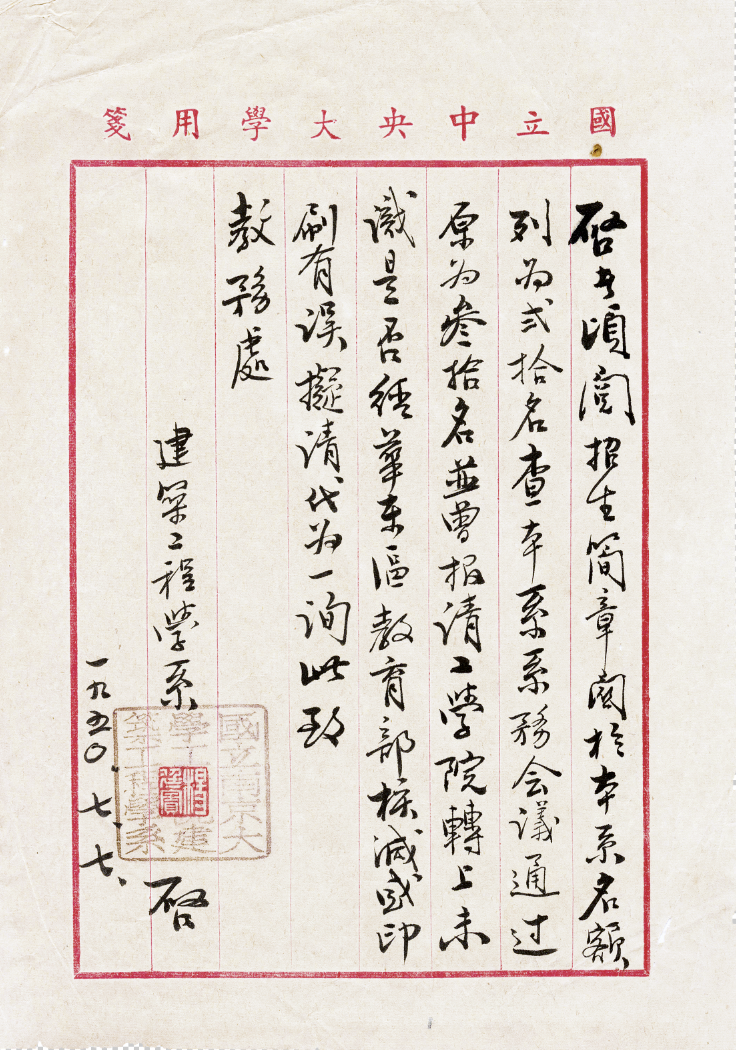 國立中央大學用箋
啓者頃閱招生簡章関於本系名額
列为弍拾名查本系系務会議通过
原为叁拾名並曾报请工學院轉上未
識是否經華東區教育部核減或印
刷有误擬请代为一询此致
教務處
建築工程學系 啓
一九五〇、七、七、
國立南京大
學工 建
築工程學系
楊廷寶